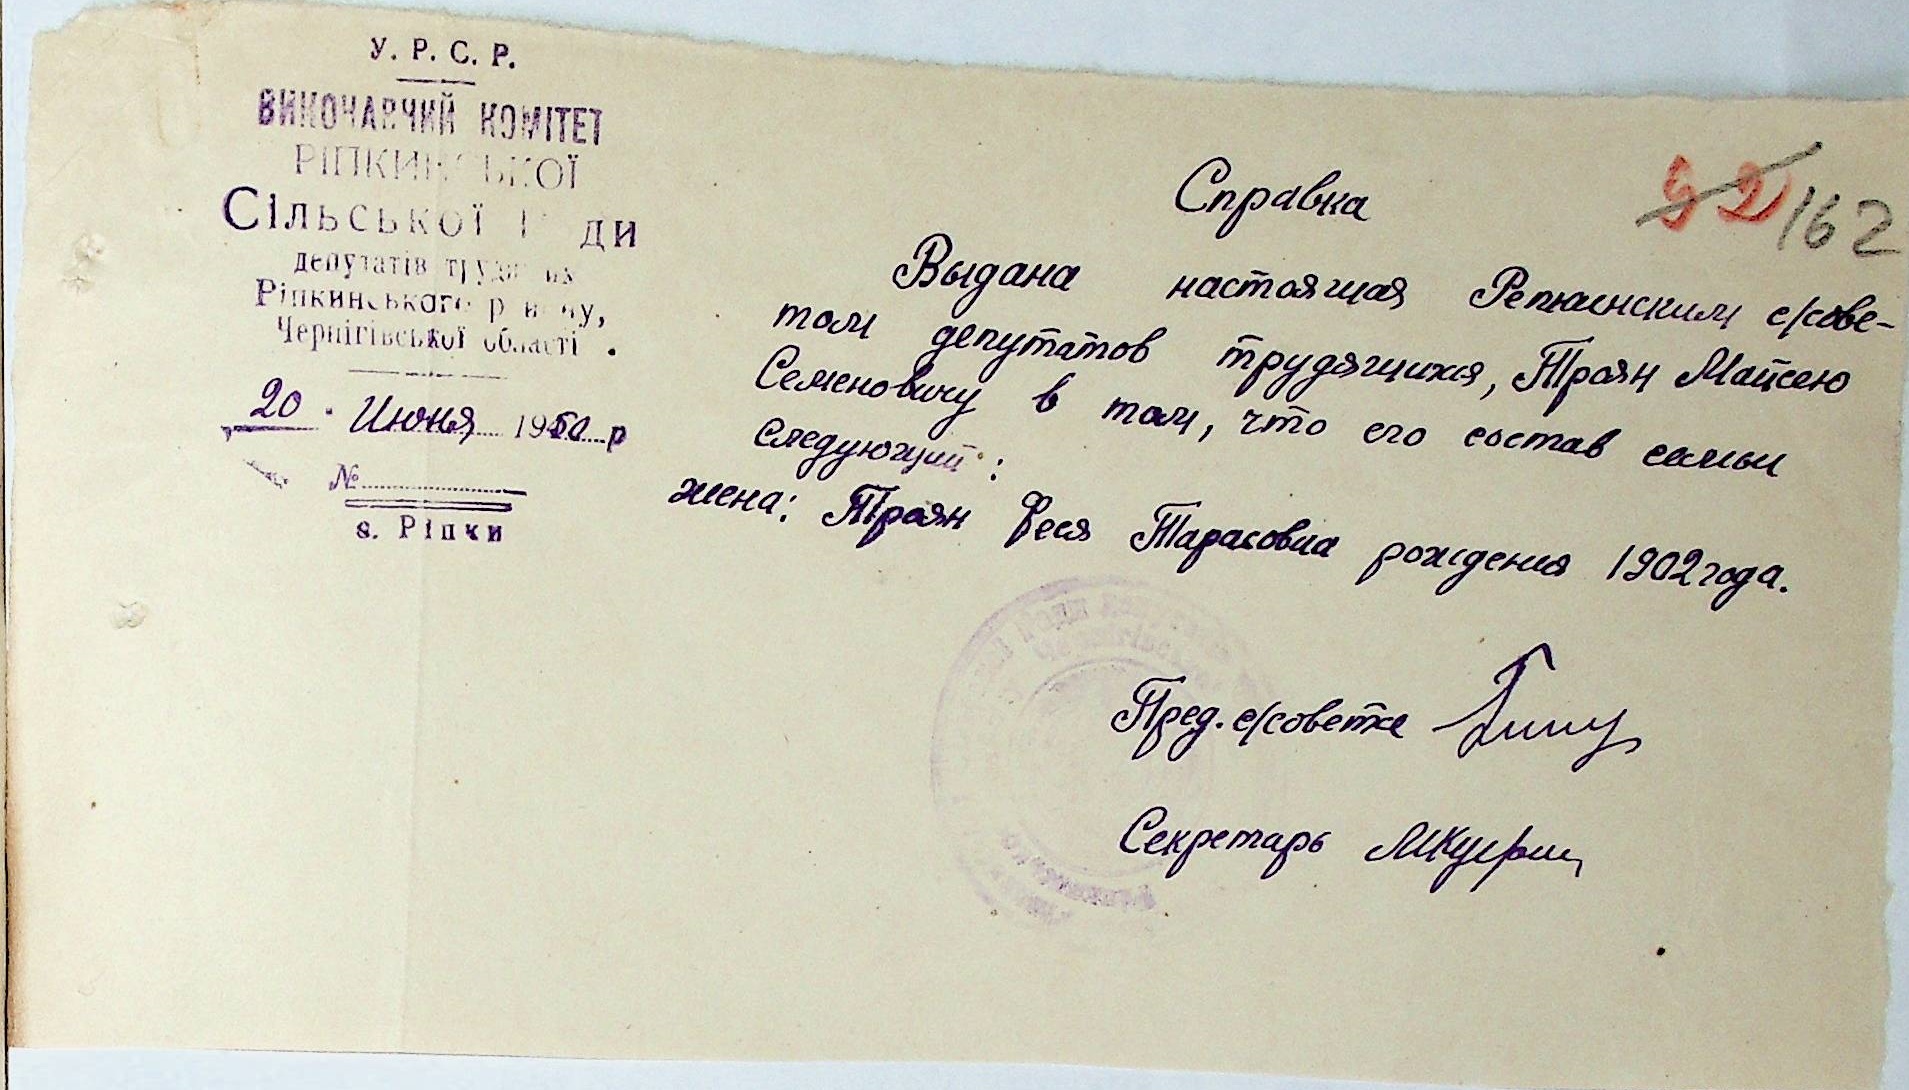 У. Р. С. Р.
ВИКОНАВЧИЙ КОМІТЕТ
РІПКИНСЬКОЇ
Сільської Ради
депутатів трудящих
Ріпкинського району,
Чернігівської області.
20 . Июня 1950 р
№
с. Ріпки
92 162
Справка
Выдана настоящая Репкинским с/сове-
том депутатов трудящихся, Троян Мойсею
Семеновичу в том, что его состав семьи
следующий:
жена: Троян Феся Тарасовна рождения 1902 года.
Пред. с/совета
Секретарь